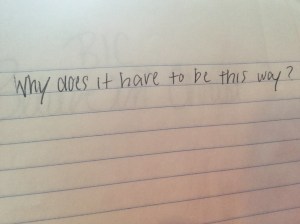 Why does it have to be this way?